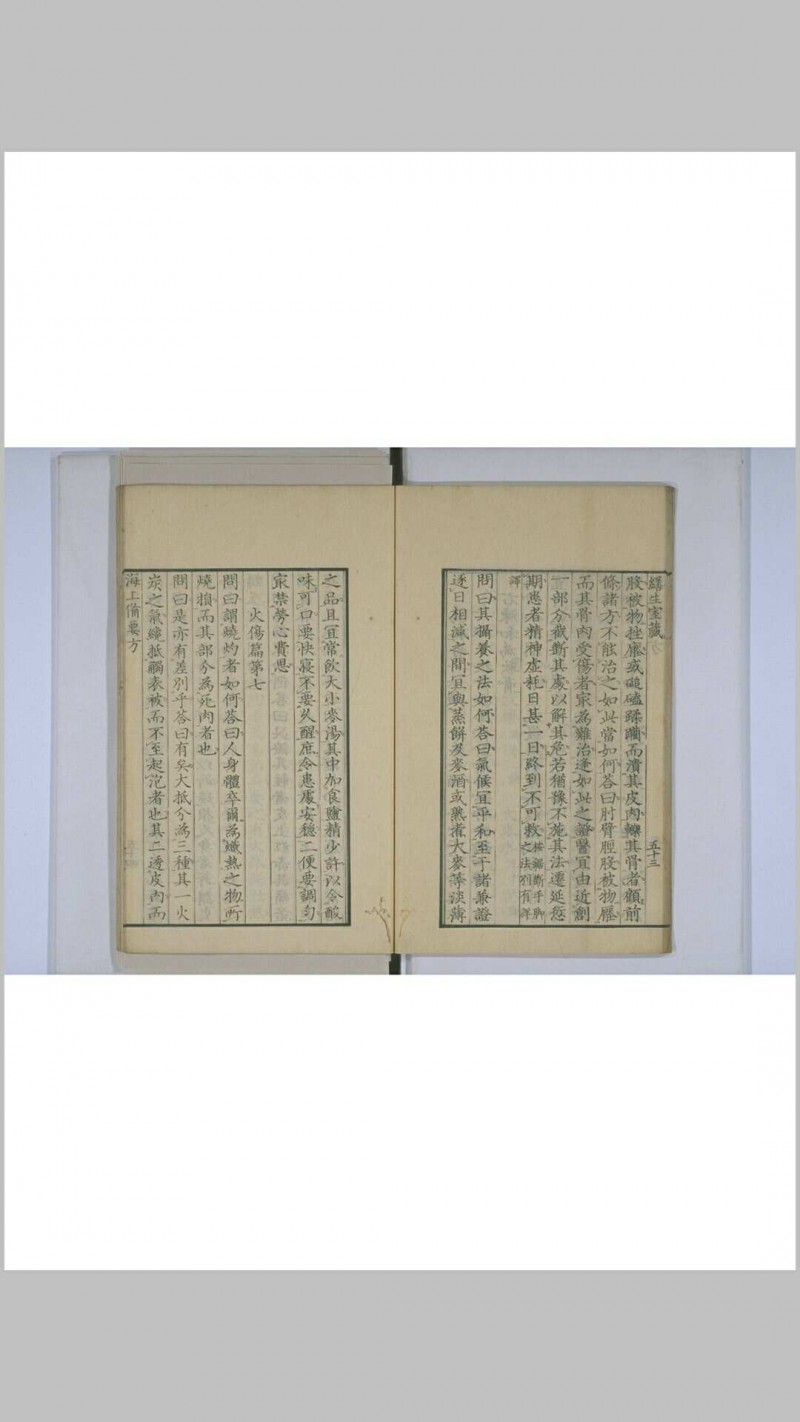 繕生室藏
五十三
股被物挫壓或磓磕蹂躪而潰其皮肉轢其骨者顧前
條諸方不能治之如此當如何答曰肘臂脛股被物壓
而其骨肉受傷者冣為難治逢如此之證醫宜由近創
一部分截斷其處以解其危若猶豫不施其法遷延愆
期患者精神虛耗日甚一日終到不可救按鋸斷手脚之法別有詳
譯
問曰其攝養之法如何答曰氣候宜平和至于諸兼證
逐日相減之間宜與蒸餅及麥酒或熟煮大麥等淡薄
之品且宜常飲大小麥湯其中加食鹽精少許以令酸
味可口要快寢不要久醒庶令患處安穩二便要調勻
冣禁勞心費思
火傷篇第七
問曰謂燒灼者如何答曰人身體卒爾為熾熱之物所
燒損而其部分為死肉者也
問曰是亦有差別乎答曰有矣大抵分為三種其一火
炭之氣纔抵觸表被而不至起泡者也其二透皮肉而
海上備要方